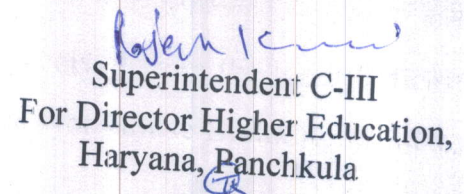 Superintendent C-III
For Director Higher Education,
Haryana, Panchkula